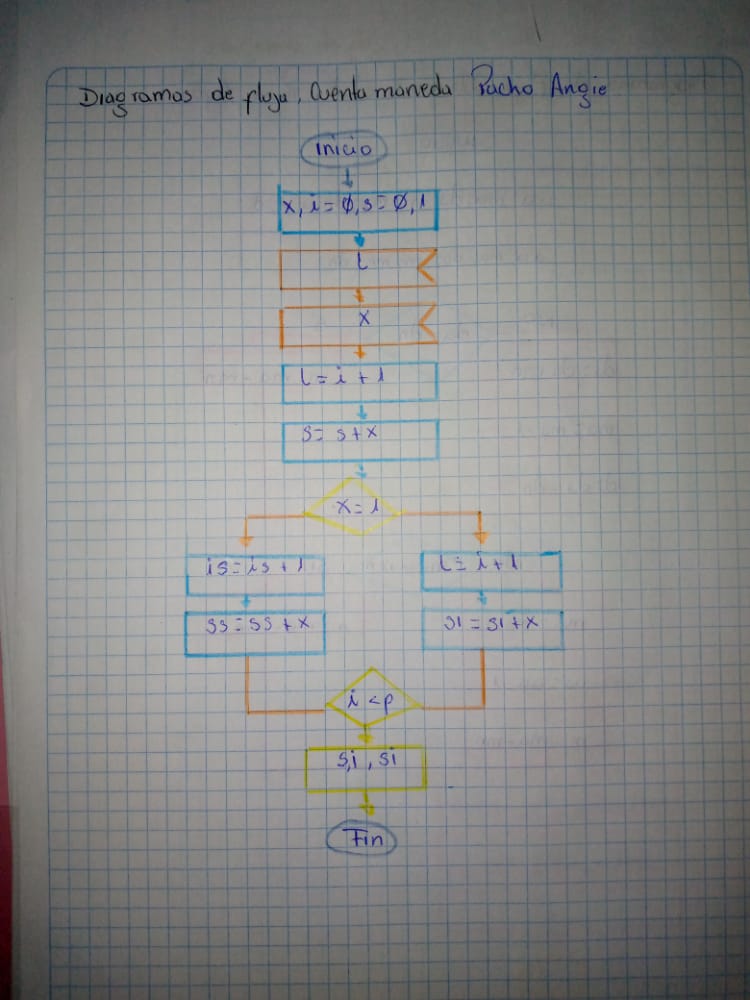 Diagramas de fluja, Cuenta moneda Pacho Angie
Inicio
x, i = Ø, s = Ø, 1
L
x
L = i + 1
s = s + x
x = 1
is = is + 1
L = i + 1
ss = ss + x
si = si + x
i < p
s,i , si
Fin